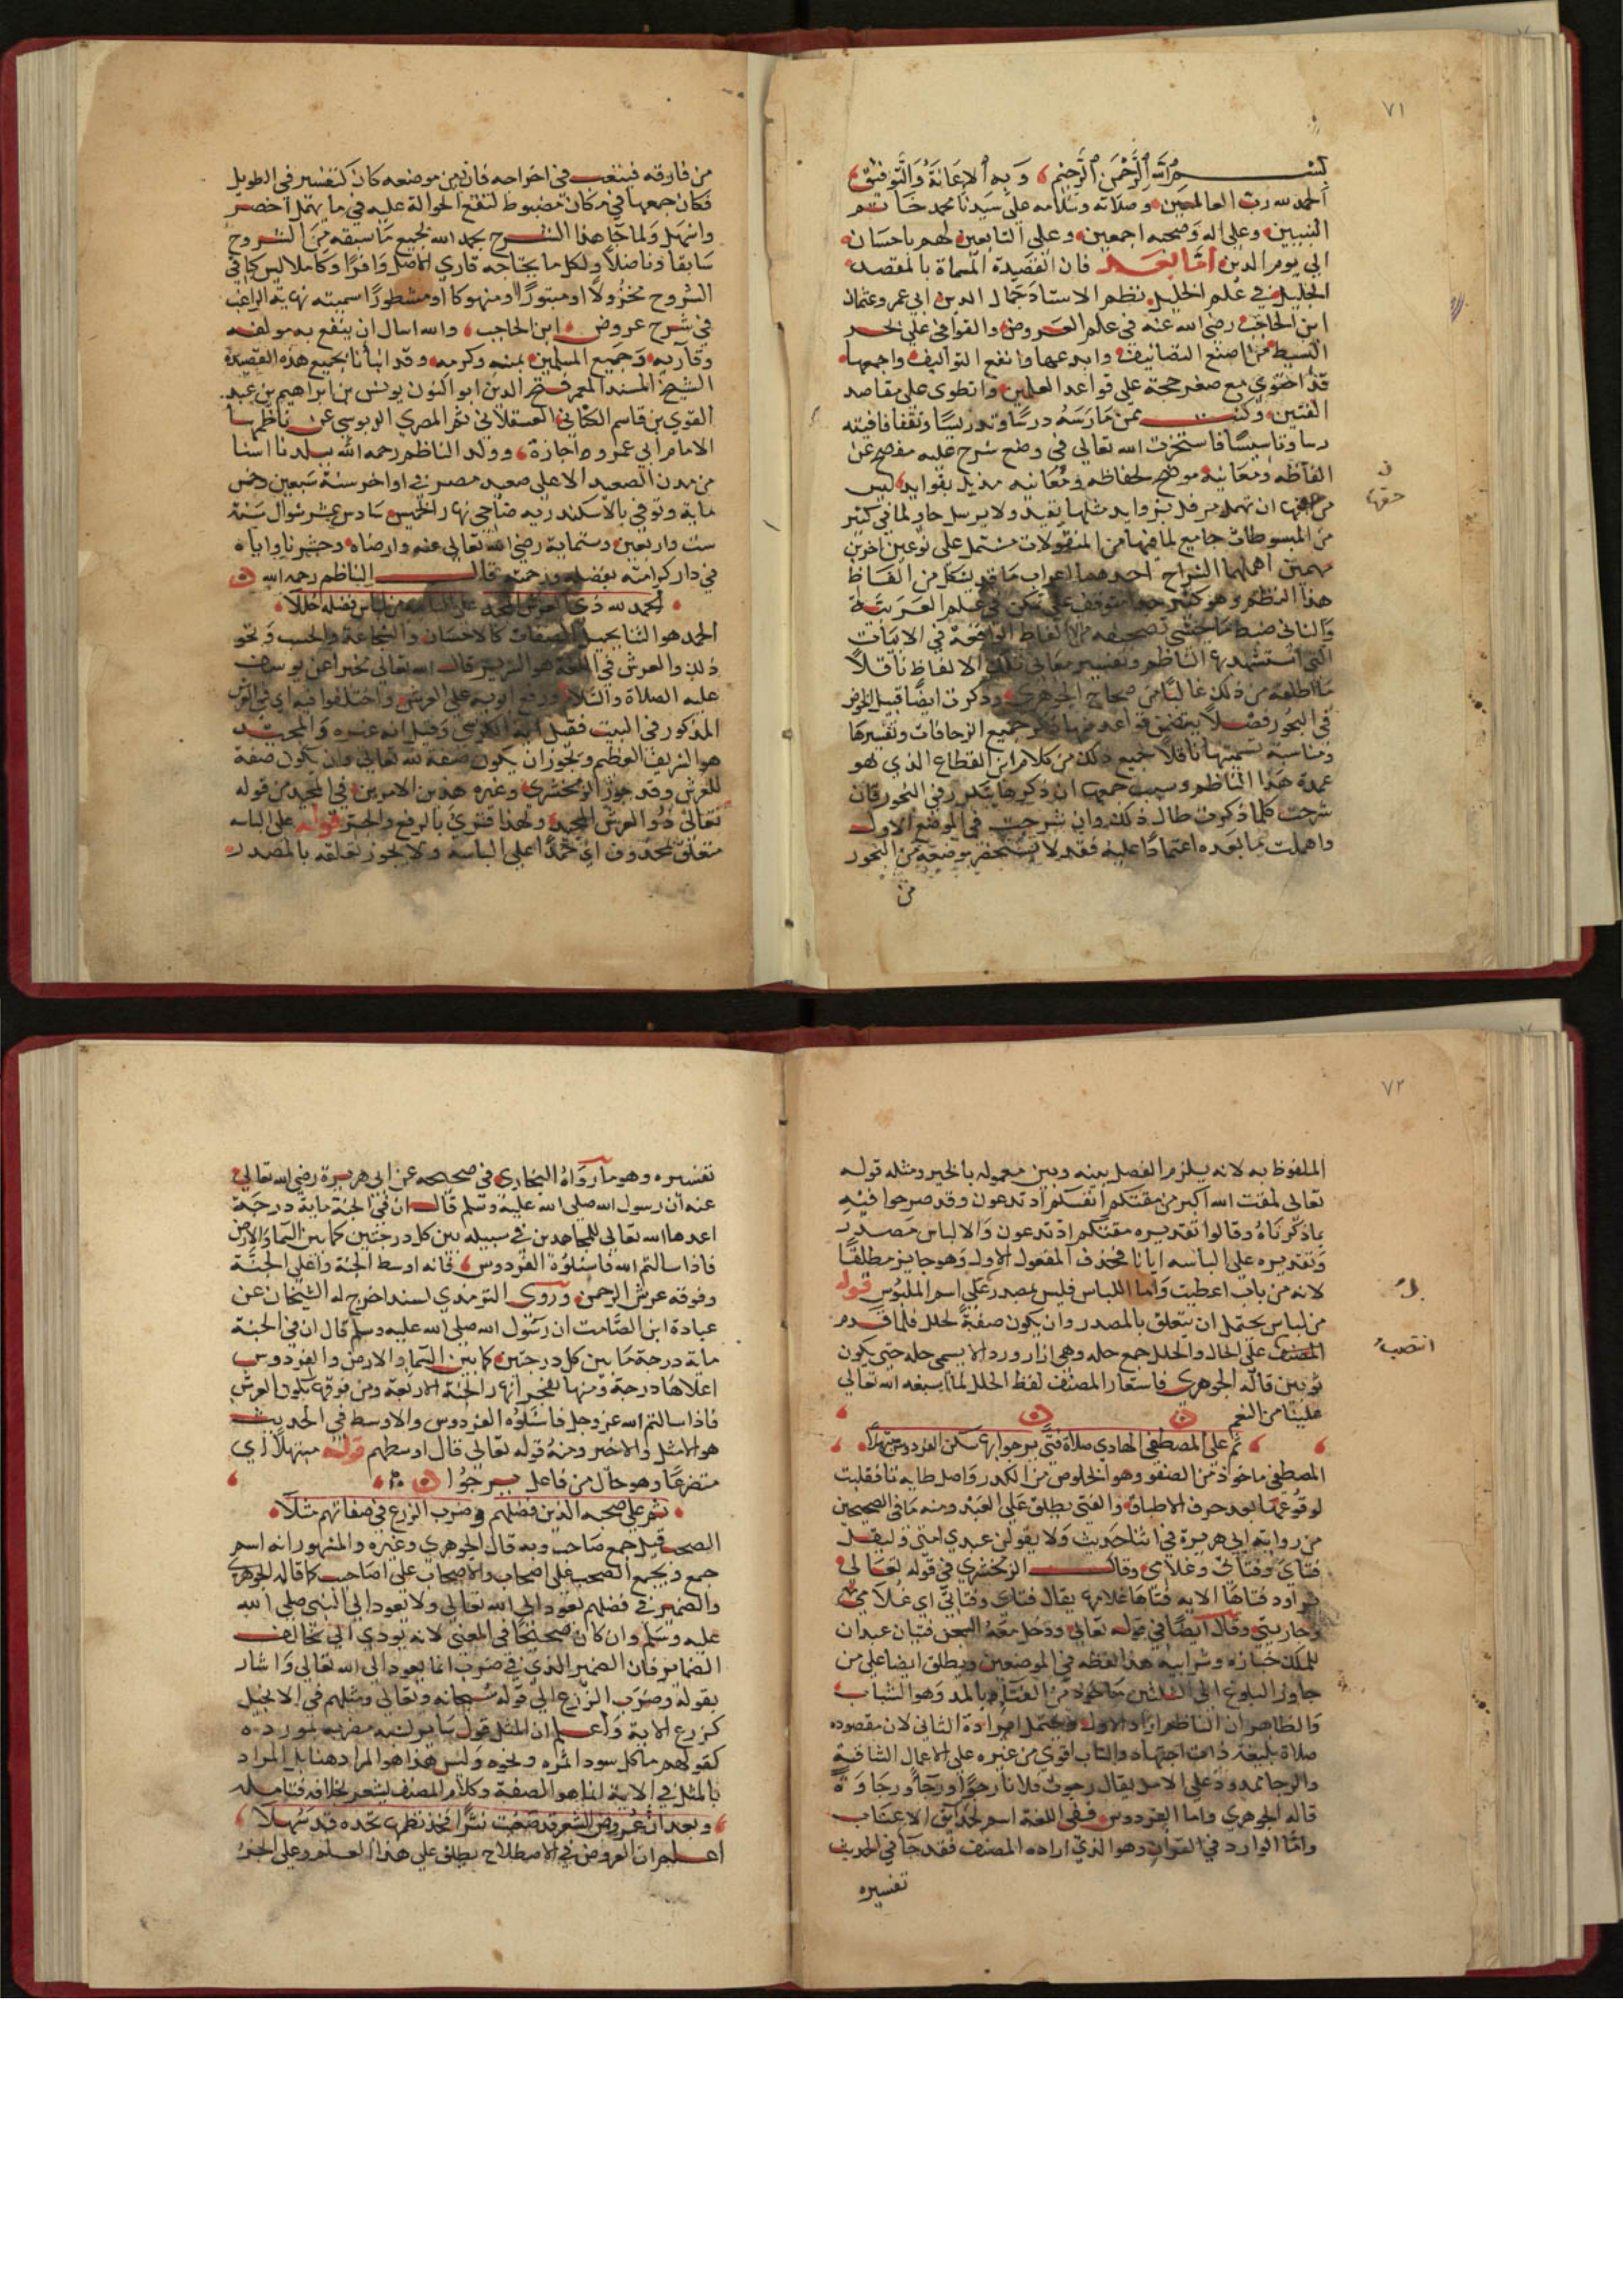 ٧١
بسم الله الرحمن الرحيم وبه الإعانة والتوفيق
الحمد لله رب العالمين وصلاته وسلامه على سيدنا محمد خاتم
النبيين وعلى اله وصحبه اجمعين وعلى التابعين لهم باحسان
الى يوم الدين اما بعد فان القصيدة المسماة بالمقصد
الجليل في علم الخليل نظم الاستاذ جمال الدين ابي عمرو عثمان
ابن الحاجب رضي الله عنه في علم العروض والقوافي على بحر
البسيط من اصنع التصانيف وابدعها وانفع التواليف واجمعها
قد احتوى مع صغر حجمه على قواعد العلمين وانطوى على مقاصد
الفنين وكنت ممن مارسه درسا وتدريسا وثقفا فافيته
رسا وتاسيسا فاستخرت الله تعالى في وضع شرح عليه مفصح عن
الفاظه ومعانيه موضح لحفاظه ومعانيه مذيل بفوايد ليس
من حقها ان تهمل مرفل بزوايد مثلها يقيد ولا يرسل حاو لما في كثير
من المبسوطات جامع لما فيها من المنقولات مشتمل على نوعين اخرين
مهمين اهملهما الشراح احدهما اعراب ما قد يشكل من الفاظ
هذا النظم وهو كثير جدا متوقف على تمكن في علم العربية
والثاني ضبط ما خشي تصحيفه من الفاظ الواقعة في الابيات
التي استشهد بها الناظم وتفسير معاني تلك الالفاظ ناقلا
ما اطلقه من ذلك غالبا من صحاح الجوهري وذكرت ايضا قبيل الخوض
في البحور فصلا يتضمن قواعد منها ذكر جميع الزحافات وتفسيرها
ومناسبة تسميتها ناقلا جميع ذلك من كلام ابن القطاع الذي هو
عمدة هذا الناظم وسبب جمعها ان ذكرها يتكرر في البحور فان
شرحت كلما ذكرت طال ذلك وان شرحت في الموضع الاول
واهملت ما بعده اعتمادا عليه فقد لا يستحضر موضعه من البحور
من
حقها
من فارقه فيتعب في اخراجه فان بين موضعه كان كتفسير في الطويل
فكان جمعها في مكان مضبوط لتقع الحوالة عليه في ما يهمل اخصر
واسهل ولما جا هذا الشرح بحمد الله لجميع ما سبقه من الشروح
سابقا وفاضلا ولكل ما يحتاجه قاري الاصل وافرا وكاملا ليس كما في
الشروح مخزولا او مبتورا او منهوكا او مشطورا سميته نهاية الراغب
في شرح عروض ابن الحاجب والله اسال ان ينفع به مولفه
وقاريه وجميع المسلمين بمنه وكرمه وقد انبانا بجميع هذه القصيدة
الشيخ المسند المعمر فتح الدين ابو النون يونس بن ابراهيم بن عبد
القوي بن قاسم الكناني العسقلاني ثم المصري الدبوسي عن ناظمها
الامام ابي عمرو اجازة وولد الناظم رحمه الله ببلدنا اسنا
من مدن الصعيد الاعلى صعيد مصر في اواخر سنة سبعين وخمس
ماية وتوفي بالاسكندرية ضاحي نهار الخميس سادس عشر شوال سنة
ست واربعين وستماية رضي الله تعالى عنه وارضاه وحشرنا واياه
في دار كرامته بفضله ورحمته قال الناظم رحمه الله
الحمد لله ذي العرش المجيد على الباسه من لباس فضله حللا
الحمد هو الثنا بجميل الصفات كالاحسان والشجاعة والحسب ونحو
ذلك والعرش في اللغة هو السرير قال الله تعالى مخبرا عن يوسف
عليه الصلاة والسلام ورفع ابويه على العرش واختلفوا فيه اي في العرش
المذكور في البيت فقيل انه الكرسي وقيل انه غيره والمجيد
هو الشريف العظيم ويجوز ان يكون صفة لله تعالى وان يكون صفة
للعرش وقد جوز الزمخشري وغيره هذين الامرين في المجيد من قوله
تعالى ذو العرش المجيد ولهذا قرئ بالرفع والجر قوله على الباسه
متعلق بمحذوف اي حمدا على الباسه ولا يجوز تعلقه بالمصدر
٧٢
الملفوظ به لانه يلزم الفصل بينه وبين معموله بالخبر ومثله قوله
تعالى لمقت الله اكبر من مقتكم انفسكم اذ تدعون وقد صرحوا فيه
بما ذكرناه وقالوا تقديره مقتكم اذ تدعون والالباس مصدر
وتقديره على الباسه ايانا فحذف المفعول الاول وهو جايز مطلقا
لانه من باب اعطيت واما اللباس فليس بمصدر على اسم الملبوس قوله
من لباس يحتمل ان يتعلق بالمصدر وان يكون صفة لحلل فلما قدم
انتصب على الحال والحلل جمع حله وهي ازار وردا لا يسمى حلة حتى يكون
ثوبين قاله الجوهري فاستعار المصنف لفظ الحلل لما اسبغه الله تعالى
علينا من النعم
ثم على المصطفى الهادي صلاة فتى يرجو بها سكن الفردوس مبتهلا
المصطفى ماخوذ من الصفو وهو الخلوص من الكدر واصل طايه تا فقلبت
لوقوعها بعد حرف الاطباق والفتى يطلق على العبد ومنه ما في الصحيحين
من رواية ابي هريرة في اثنا حديث ولا يقولن عبدي امتي وليقل
فتاي وفتاتي وغلامي وقال الزمخشري في قوله تعالى
تراود فتاها الايه فتاها غلامها يقال فتاي وفتاتي اي غلامي
وجاريتي وقال ايضا في قوله تعالى ودخل معه السجن فتيان عبدان
للملك خبازه وشرابيه هذا لفظه في الموضعين ويطلق ايضا على من
جاوز البلوغ الى الثلثين ماخوذ من الفتاء بالمد وهو الشباب
والظاهر ان الناظم اراد الاول ويحتمل ارادة الثاني لان مقصوده
صلاة بليغة ذات اجتهاد والشاب اقوى من غيره على الاعمال الشاقة
والرجا ممدود على الامل يقال رجوت فلانا رجوا ورجا ورجاوة
قاله الجوهري واما الفردوس ففي اللغة اسم لحدايق الاعناب
واما الوارد في القران وهو الذي اراده المصنف فقد جا في الحديث
تفسيره
انتصب
تفسيره وهو ما رواه البخاري في صحيحه عن ابي هريرة رضي الله تعالى
عنه ان رسول الله صلى الله عليه وسلم قال ان في الجنة ماية درجة
اعدها الله تعالى للمجاهدين في سبيله بين كل درجتين كما بين السما والارض
فاذا سالتم الله فاسئلوه الفردوس فانه اوسط الجنة واعلى الجنة
وفوقه عرش الرحمن وروى الترمذي لسند اخرج له الشيخان عن
عبادة ابن الصامت ان رسول الله صلى الله عليه وسلم قال ان في الجنة
ماية درجة ما بين كل درجتين كما بين السما والارض والفردوس
اعلاها درجة ومنها تفجر انهار الجنة الاربعة ومن فوقها يكون العرش
فاذا سالتم الله عز وجل فاسئلوه الفردوس والاوسط في الحديث
هو الامثل والاخير ومنه قوله تعالى قال اوسطهم قوله مبتهلا اي
متضرعا وهو حال من فاعل يرجوا
ثم على صحبه الذين فضلهم وضرب الزرع في صفاتهم مثلا
الصحب قيل جمع صاحب وبه قال الجوهري وغيره والمشهور انه اسم
جمع ويجمع الصحب على اصحاب والاصحاب على اصاحب كما قاله الجوهري
والضمير في فضلهم يعود الى الله تعالى ولا يعود الى النبي صلى الله
عليه وسلم وان كان صحيحا في المعنى لانه يودي الى تخالف
الضماير فان الضمير الذي في ضرب انما يعود الى الله تعالى واشار
بقوله وضرب الزرع الى قوله سبحانه وتعالى ومثلهم في الانجيل
كزرع الاية واعلم ان المثل قول ساير شبه مضربه بمورده
كقولهم ما كل سودا تمره ونحوه وليس هذا هو المراد هنا بل المراد
بالمثل في الاية انما هو الصفة وكلام المصنف يشعر بخلافه فتامله
وبعد ان عروض الشعر قد صعبت نثرا فخذ نظمها تجده قد سهلا
اعلم ان العروض في الاصطلاح يطلق على هذا العلم وعلى الجزء